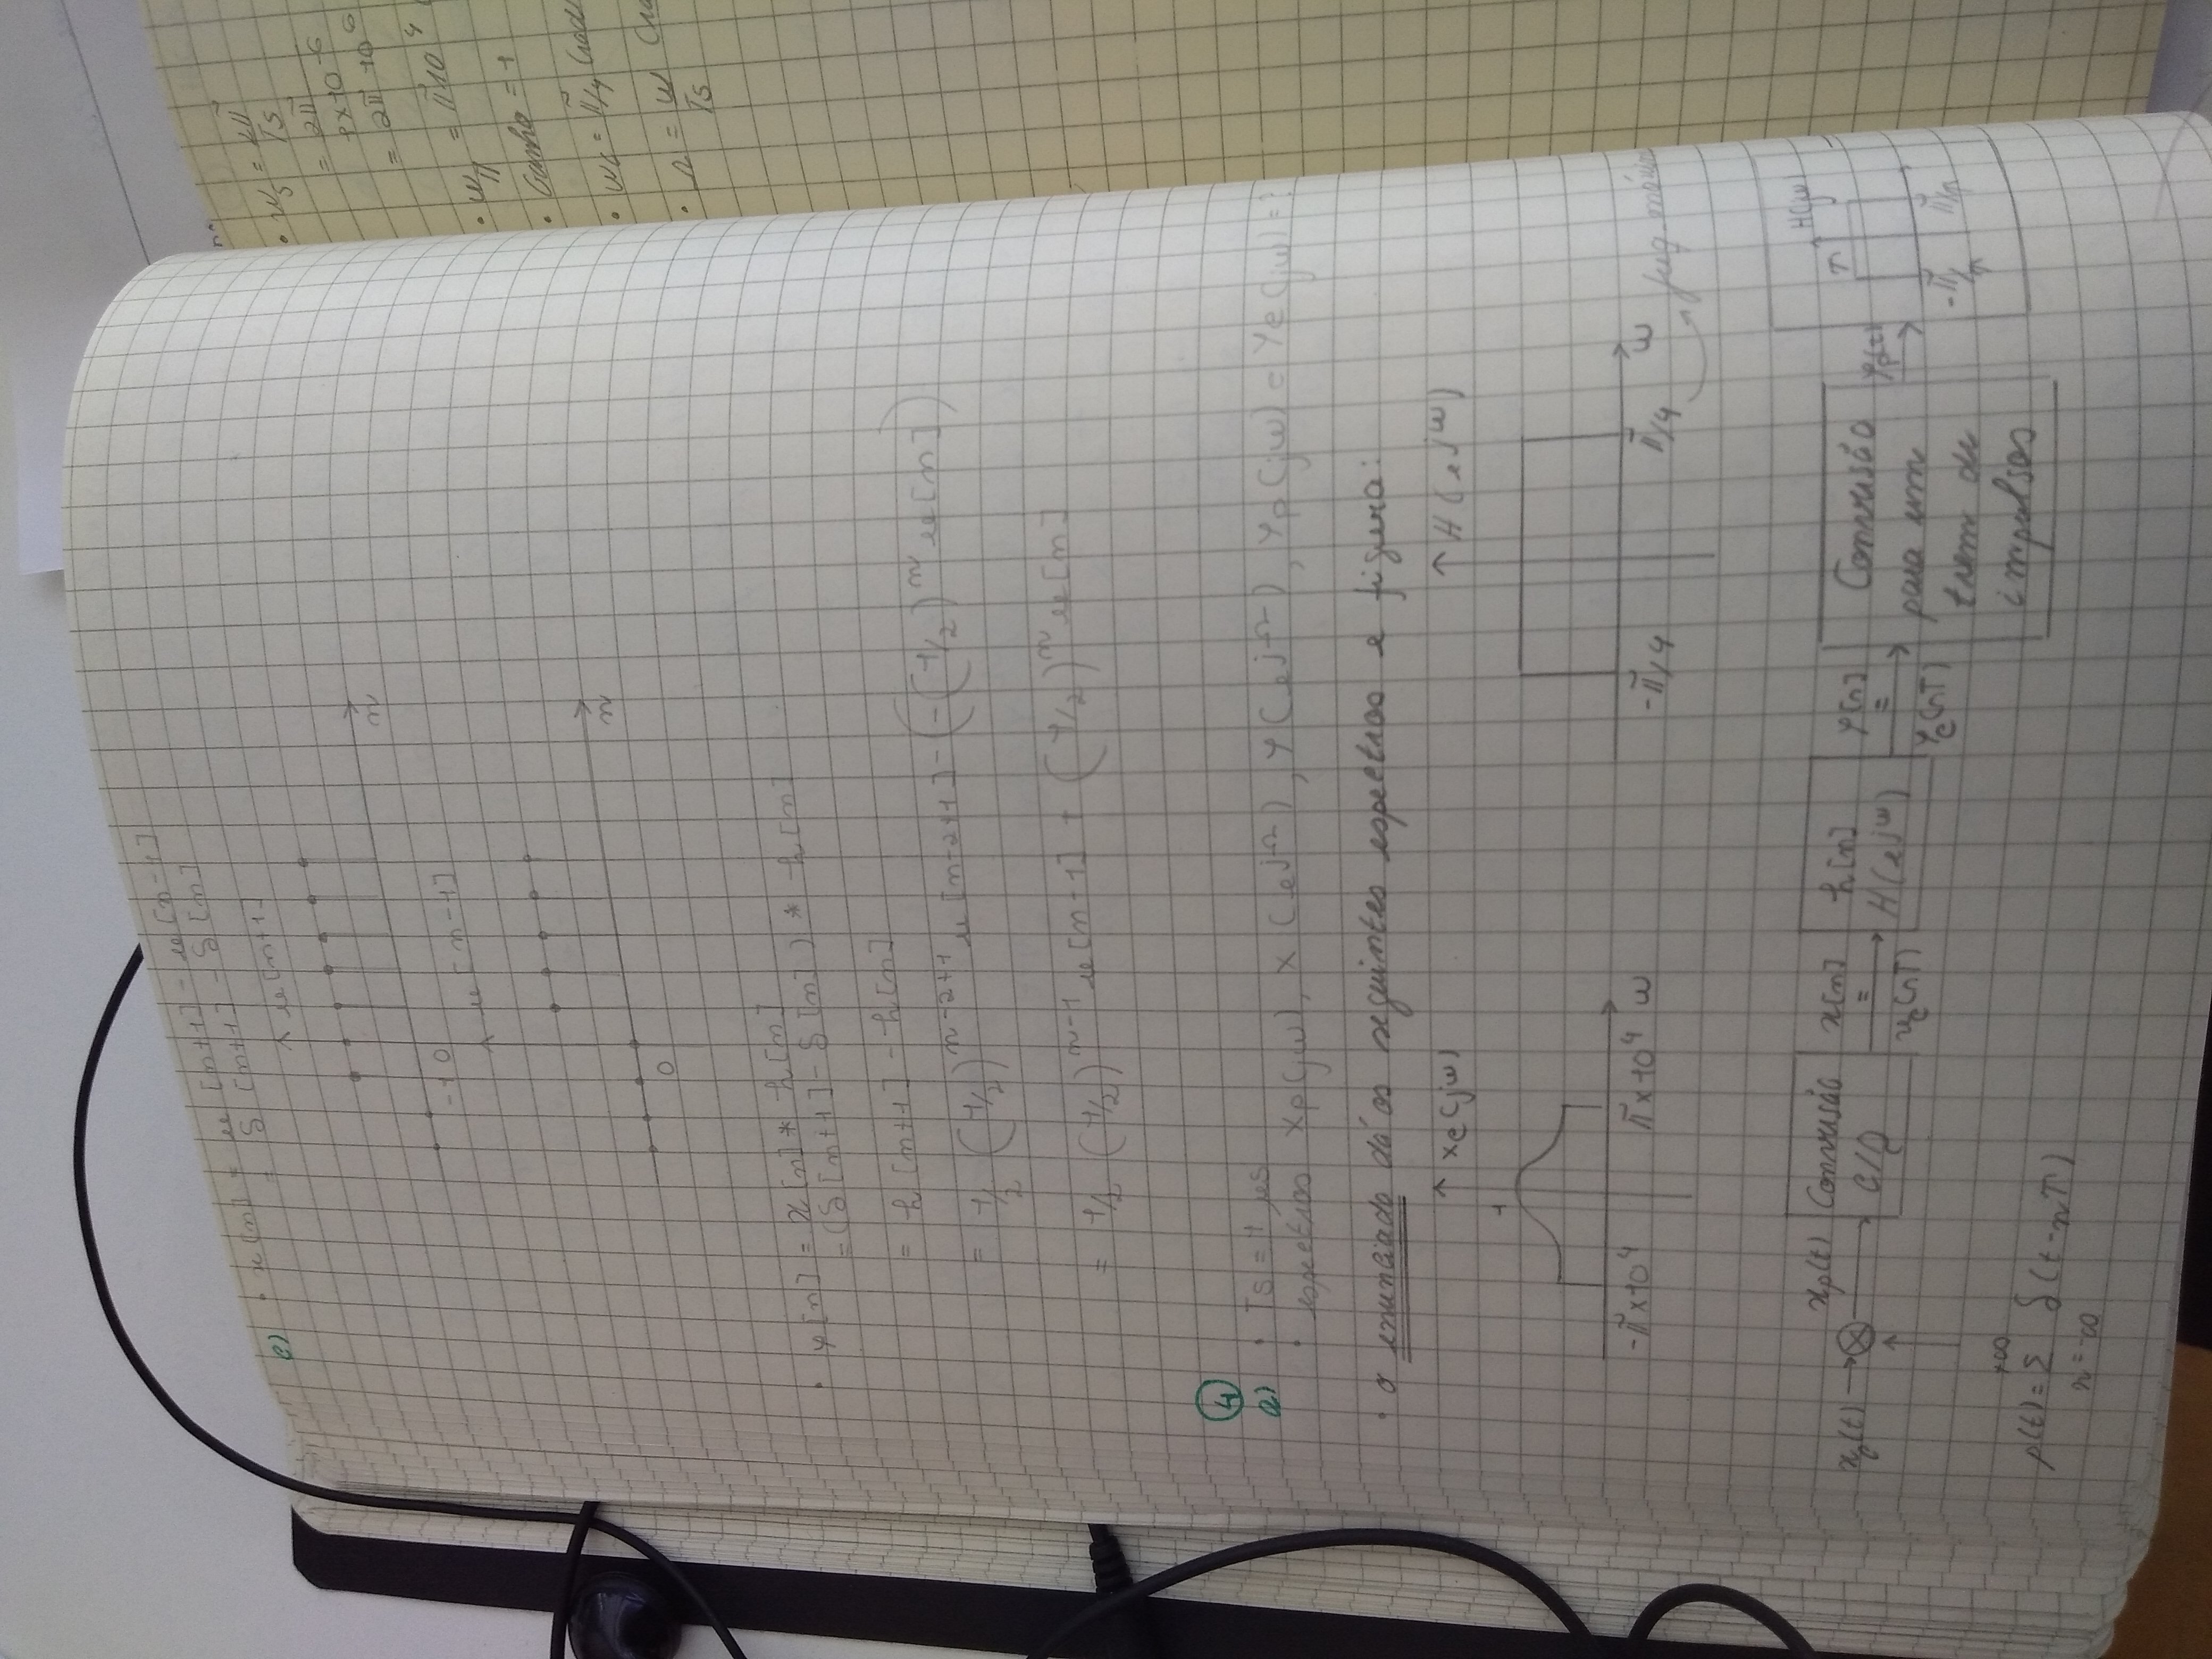 c) • x[n] = u[n+1] - u[n-1]
= δ[n+1] - δ[n]
u[n+1]
n
-1 0
u[n-1]
n
0
• y[n] = x[n] * h[n]
= (δ[n+1] - δ[n]) * h[n]
= h[n+1] - h[n]
= 1/2 (1/2)^{n-2+1} u[n-2+1] - (-(1/2)^n u[n])
= 1/2 (1/2)^{n-1} u[n-1] + (1/2)^n u[n]
4
a) • Ts = 1 μs
• espectros Xp(jω), X(e^{jΩ}), Y(e^{jΩ}), Yp(jω) e Yc(jω) = ?
• o enunciado dá os seguintes espectros e figura:
Xc(jω)
1
-π×10^4 π×10^4 ω
H(e^{jω})
-π/4 π/4 ω
freq.
xc(t) xp(t) Conversão C/D x[n] = xc(nT) h[n] H(e^{jω}) y[n] = yc(nT) Conversão para um trem de impulsos yp(t) H(jω) T -π/T π/T
p(t) = Σ_{n=-∞}^{+∞} δ(t-nT)
• ωs = 2π/Ts
= 2π/1×10^{-6}
= 2π 10^6
= π10^4
• Ganho = 1
• ωc = π/4
• Ω = ω/Ts